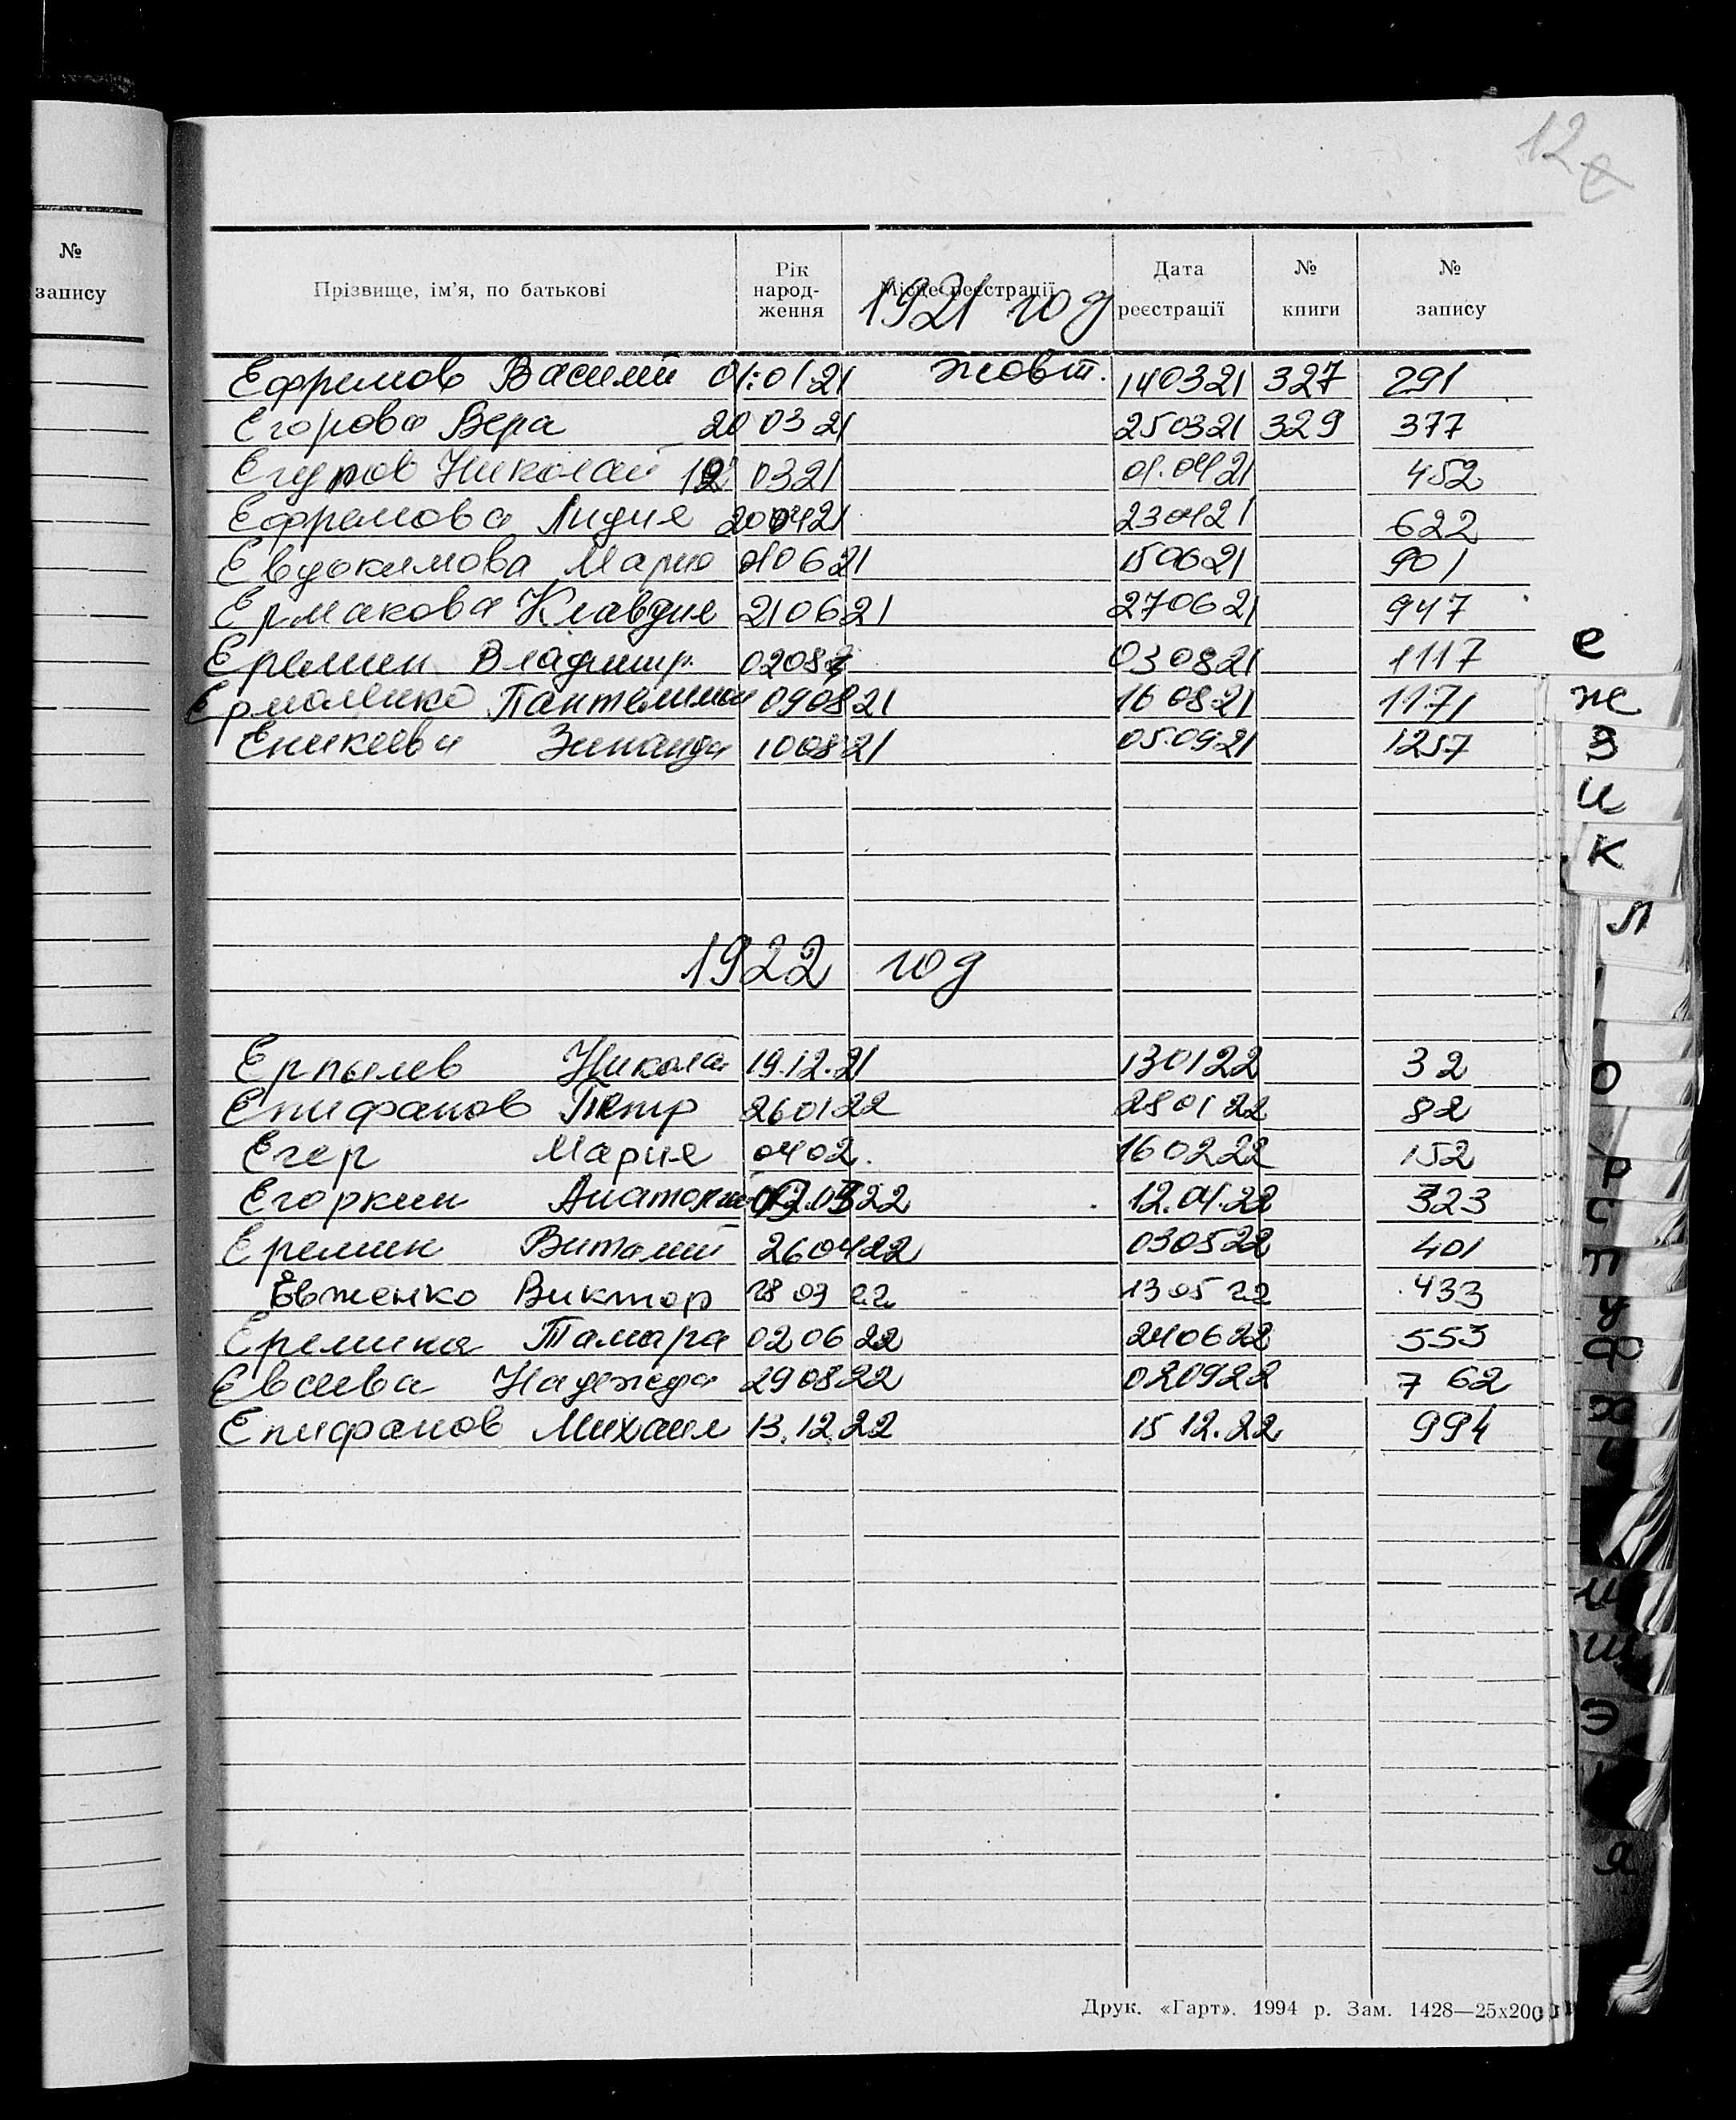 12
№
запису
Прізвище, ім'я, по батькові
Рік народ-ження
Місце реєстрації
1921 год
Дата реєстрації
№ книги
№ запису
Ефремов Василий 01.01.21 Жовт. 140321 327 291
Егорова Вера 20 03 21 250321 329 377
Егуров Николай 0321 01.0421 452
Ефремова Лидия 200421 230421 622
Евдокимова Мария 010621 150621 901
Ермакова Клавдия 210621 270621 947
Еремин Владимир. 02082 030821 1117
Ермоленко Пантелимон 090821 160821 1171
Еникеева Зинаида 100821 05.0921 1257
1922 год
Ерпылев Никола 19.12.21 130122 32
Епифанов Петр 260122 280122 82
Егер Мария 0402. 160222 152
Егоркин Анатолий 12.04.22 323
Еремин Виталий 260422 030522 401
Евженко Виктор 28 03 22 13 05 22 433
Еремина Тамара 020622 240622 553
Евсеева Надежда 290822 020922 762
Епифанов Михаил 13.12.22 15 12.22 994
е
ж
З
и
К
Л
О
Р
С
Т
У
Ф
Х
Ш
Э
Я
Друк. «Гарт». 1994 р. Зам. 1428—25х200